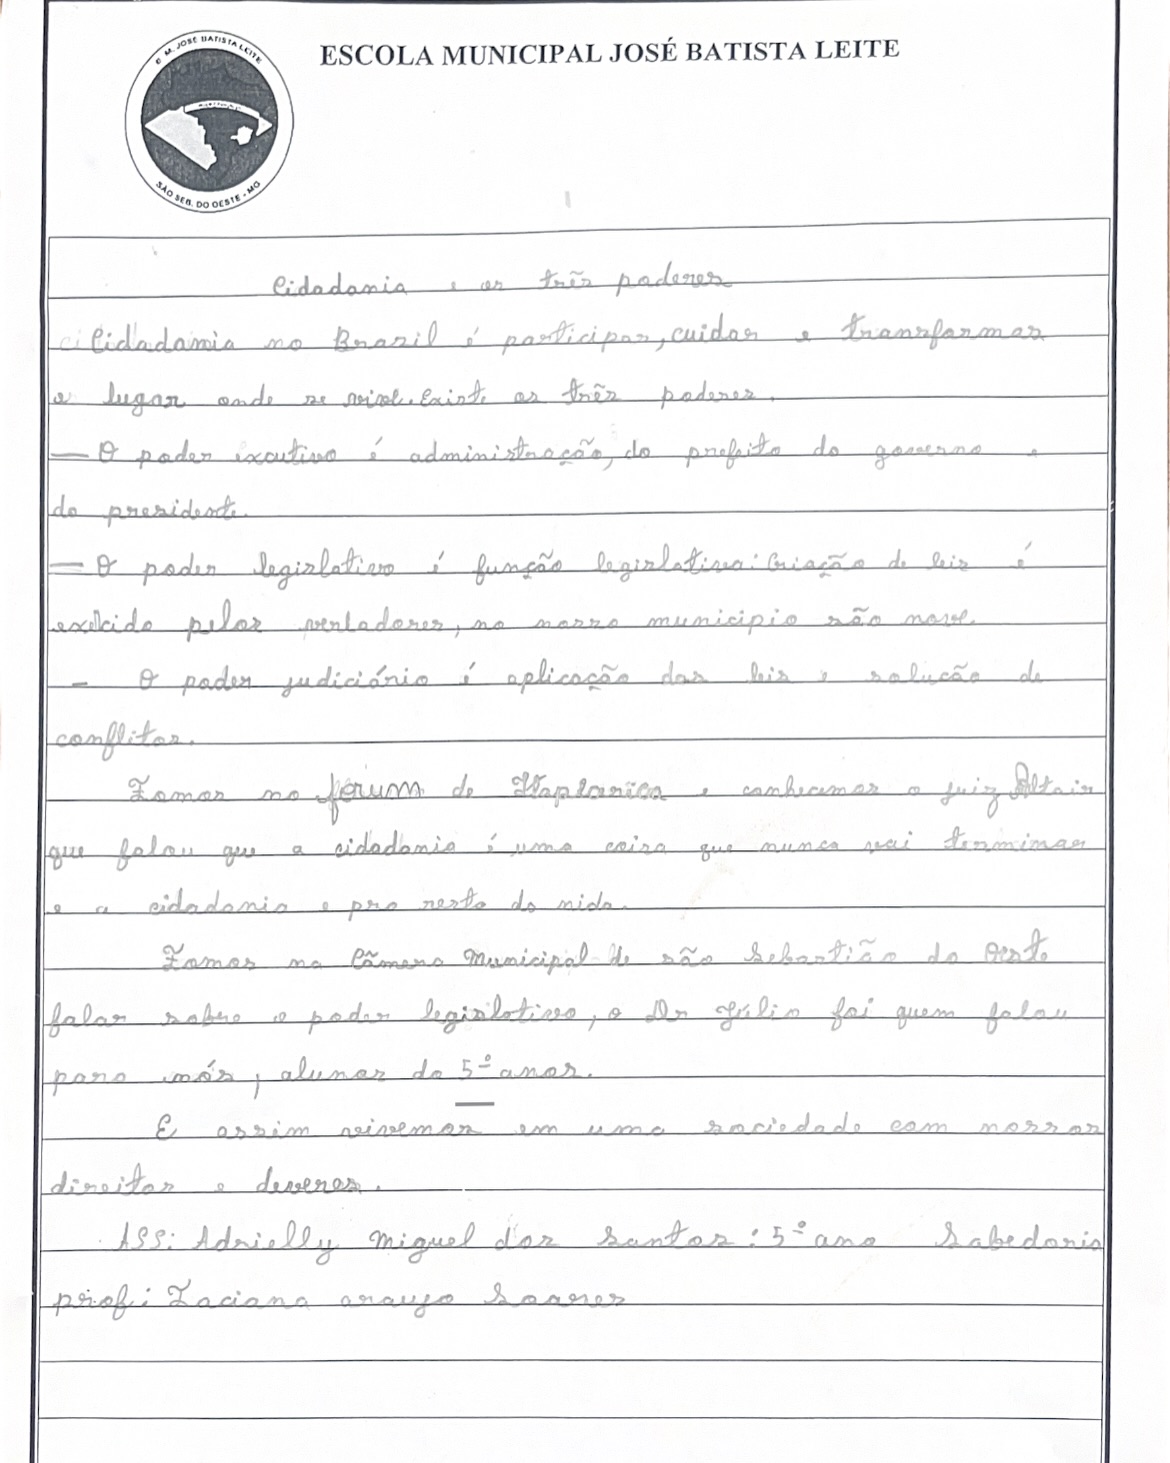 E. M. JOSÉ BATISTA LEITE
SÃO SEB. DO OESTE - MG
ESCOLA MUNICIPAL JOSÉ BATISTA LEITE
Cidadania e os três poderes
Cidadania no Brazil é participar, cuidar e transformar
o lugar onde se vive. Existe os três poderes.
— O poder ixcutivo é administração, do prefeito do governo e
do presidente.
— O poder legislativo é função legislativa: Criação de leis é
pelos, no nosso municipio são nove.
- O poder judiciário é aplicação das leis e solucão de
conflitos.
Fomos no fórum de e conhecemos o juiz Altair
que falou que a cidadania é uma coisa que nunca vai terminar
e a cidadania e pro resto da vida.
Fomos na Câmera Municipal de são Sebastião do Oeste
falar sobre o poder legislativo, o Dr Júlio foi quem falou
para nós, alunos do 5º anos.
E assim vivemos em uma sociedade com nossos
direitos e deveres.
ASS: Adrielly Miguel dos Santos: 5º ano Sabedoria
prof: araujo Soares